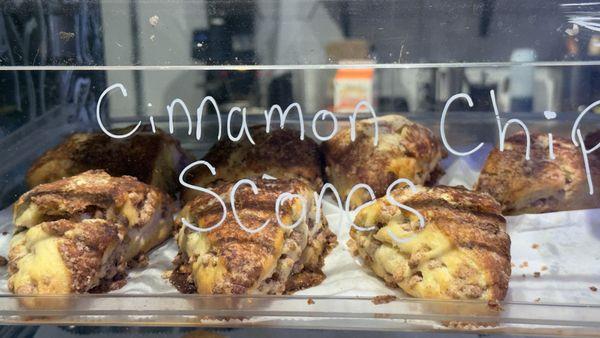 Cinnamon Chip
Scones